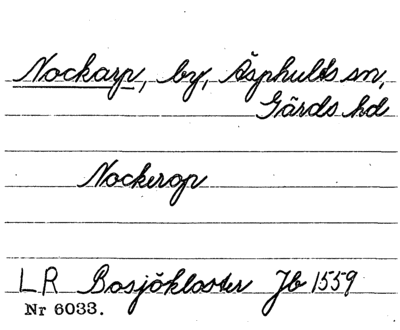 Nockarp, by, Äsphults sn,
Gärds hd
Nockerop
LR Bosjökloster Jb 1559
Nr 6033.